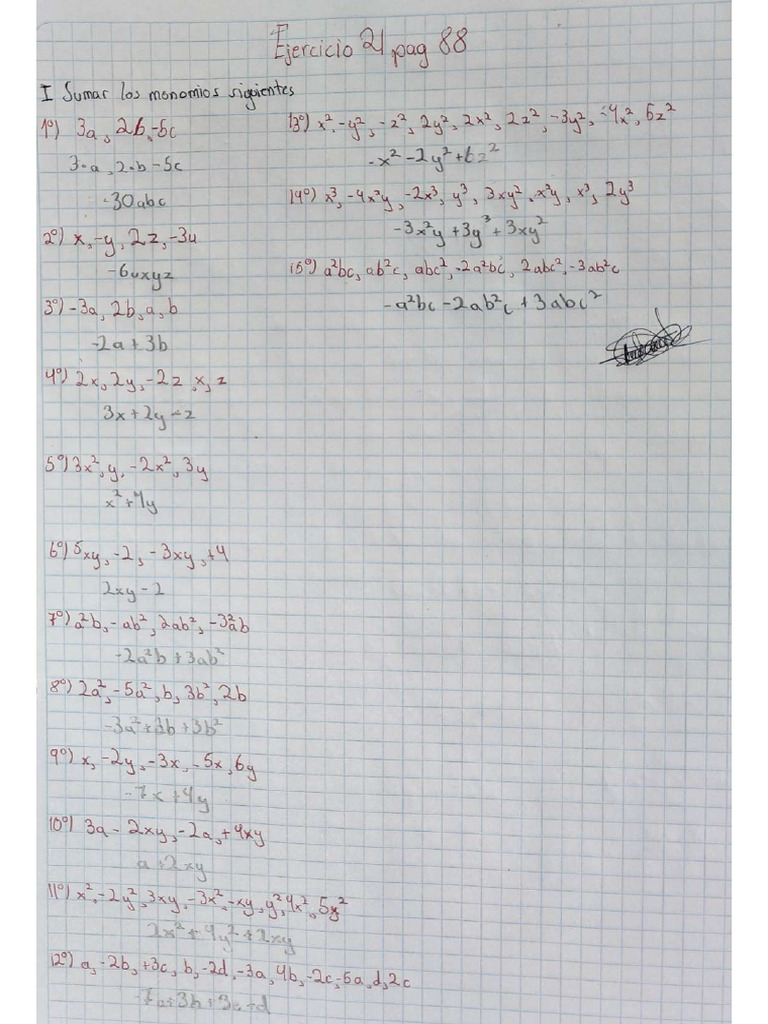 Ejercicio 21 pag 88
I Sumar los monomios siguientes
1º) 3a, 2b, -5c
3·a, 2·b -5c
-30abc
2º) x, -y, 2z, -3u
-6uxyz
3º) -3a, 2b, a, b
-2a+3b
4º) 2x, 2y, -2z, x, z
3x+2y-z
5º) 3x², y, -2x², 3y
x²+4y
6º) 5xy, -2, -3xy, +4
2xy-2
7º) a²b, -ab², 2ab², -3²ab
-2a²b+3ab²
8º) 2a², -5a², b, 3b², 2b
-3a²+3b+3b²
9º) x, -2y, -3x, -5x, 6y
-7x+4y
10º) 3a - 2xy, -2a, +4xy
a+2xy
11º) x², -2y², 3xy, -3x², -xy, y², 4x², 5y²
2x²+4y²+2xy
12º) a, -2b, +3c, b, -2d, -3a, 4b, -2c, -5a, d, 2c
-7a+3b+3c-d
13º) x², -y², -z², 2y², 2x², 2z², -3y², -4x², 5z²
-x²-2y²+6z²
14º) x³, -4x²y, -2x³, y³, 3xy², x²y, x³, 2y³
-3x²y+3y³+3xy²
15º) a²bc, ab²c, abc², -2a²bc, 2abc², -3ab²c
-a²bc-2ab²c+3abc²